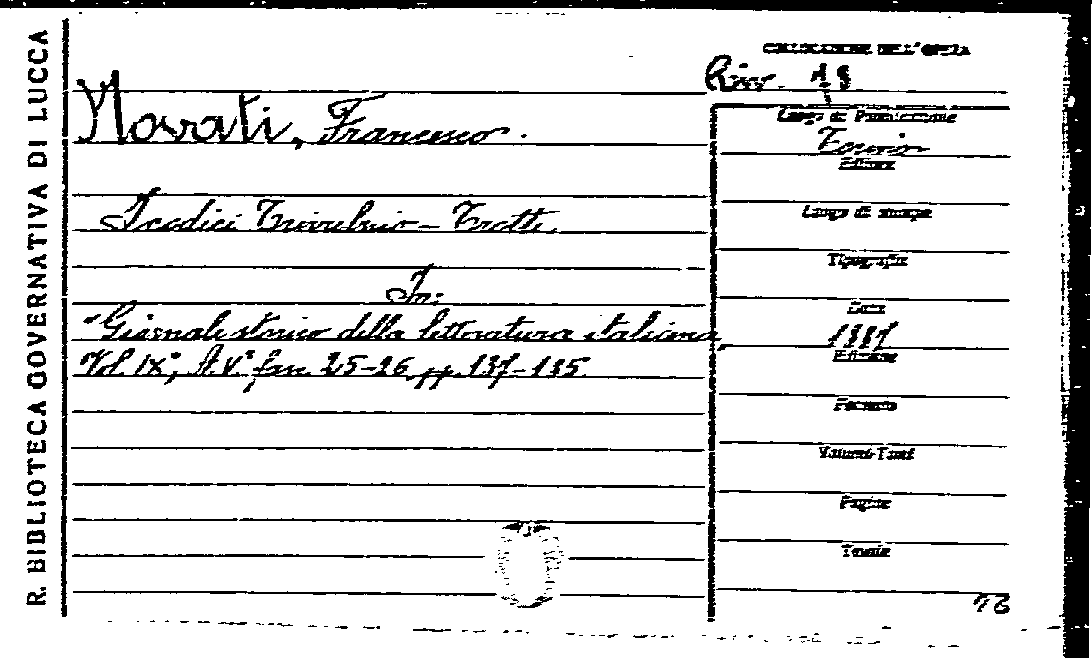 R. BIBLIOTECA GOVERNATIVA DI LUCCA
COLLOCAZIONE DELL'OPERA
Riv.
Novati, Francesco.
Luogo di Pubblicazione
Torino
Editore
I codici Trivulzio-Trotti.
Luogo di stampa
Tipografia
In:
Data
"Giornale storico della letteratura italiana,
1887
Edizione
Vol. IX°, A. V.° fasc. 25-26, pp. 137-185.
Formato
Volumi-Tomi
Pagine
Tavole